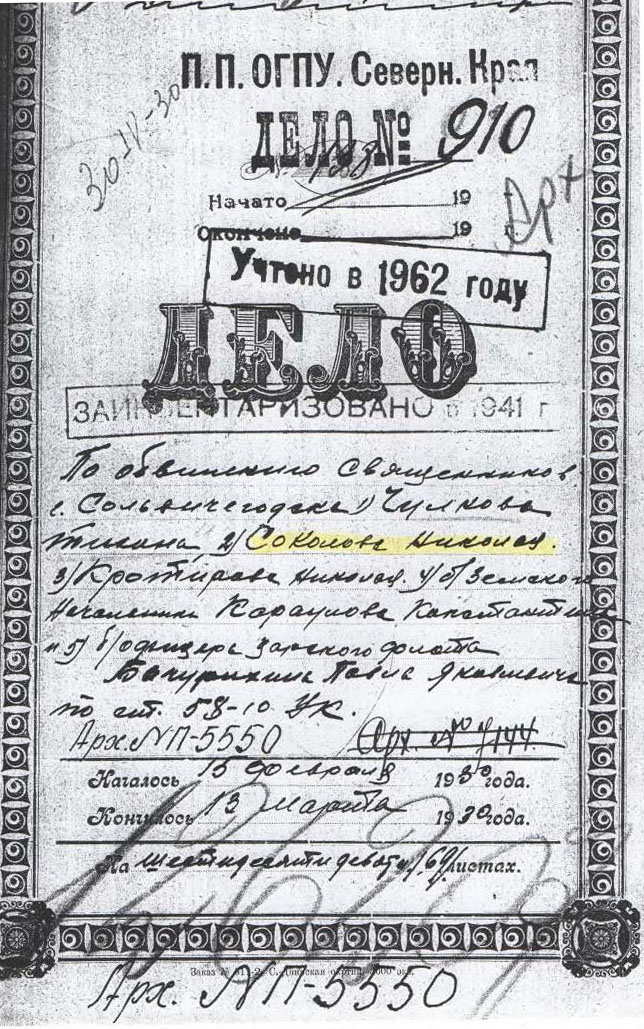 П.П. ОГПУ. Северн. Края
30-IV-30
ДЕЛО № 910
Начато 19
Окончено 19 г.
Арх
Учтено в 1962 году
ДЕЛО
ЗАИНВЕНТАРИЗОВАНО в 1941 г
По обвинению священников
г. Сольвычегодска 1) Чулкова
2) Соколова Николая.
3) Кротирова Николая. 4) б/Земского
Начальника Караулова Константина
и 5) б/офицера царского флота
Бачурихина Павла Яковлевича
по ст. 58-10 УК.
Арх. №П-5550 Арх. № 7144
Началось 15 февраля 1930 года.
Кончилось 13 марта 1930 года.
На шестидесяти девяти /69/ листах.
Заказ № С. Двинская
Арх. №П-5550